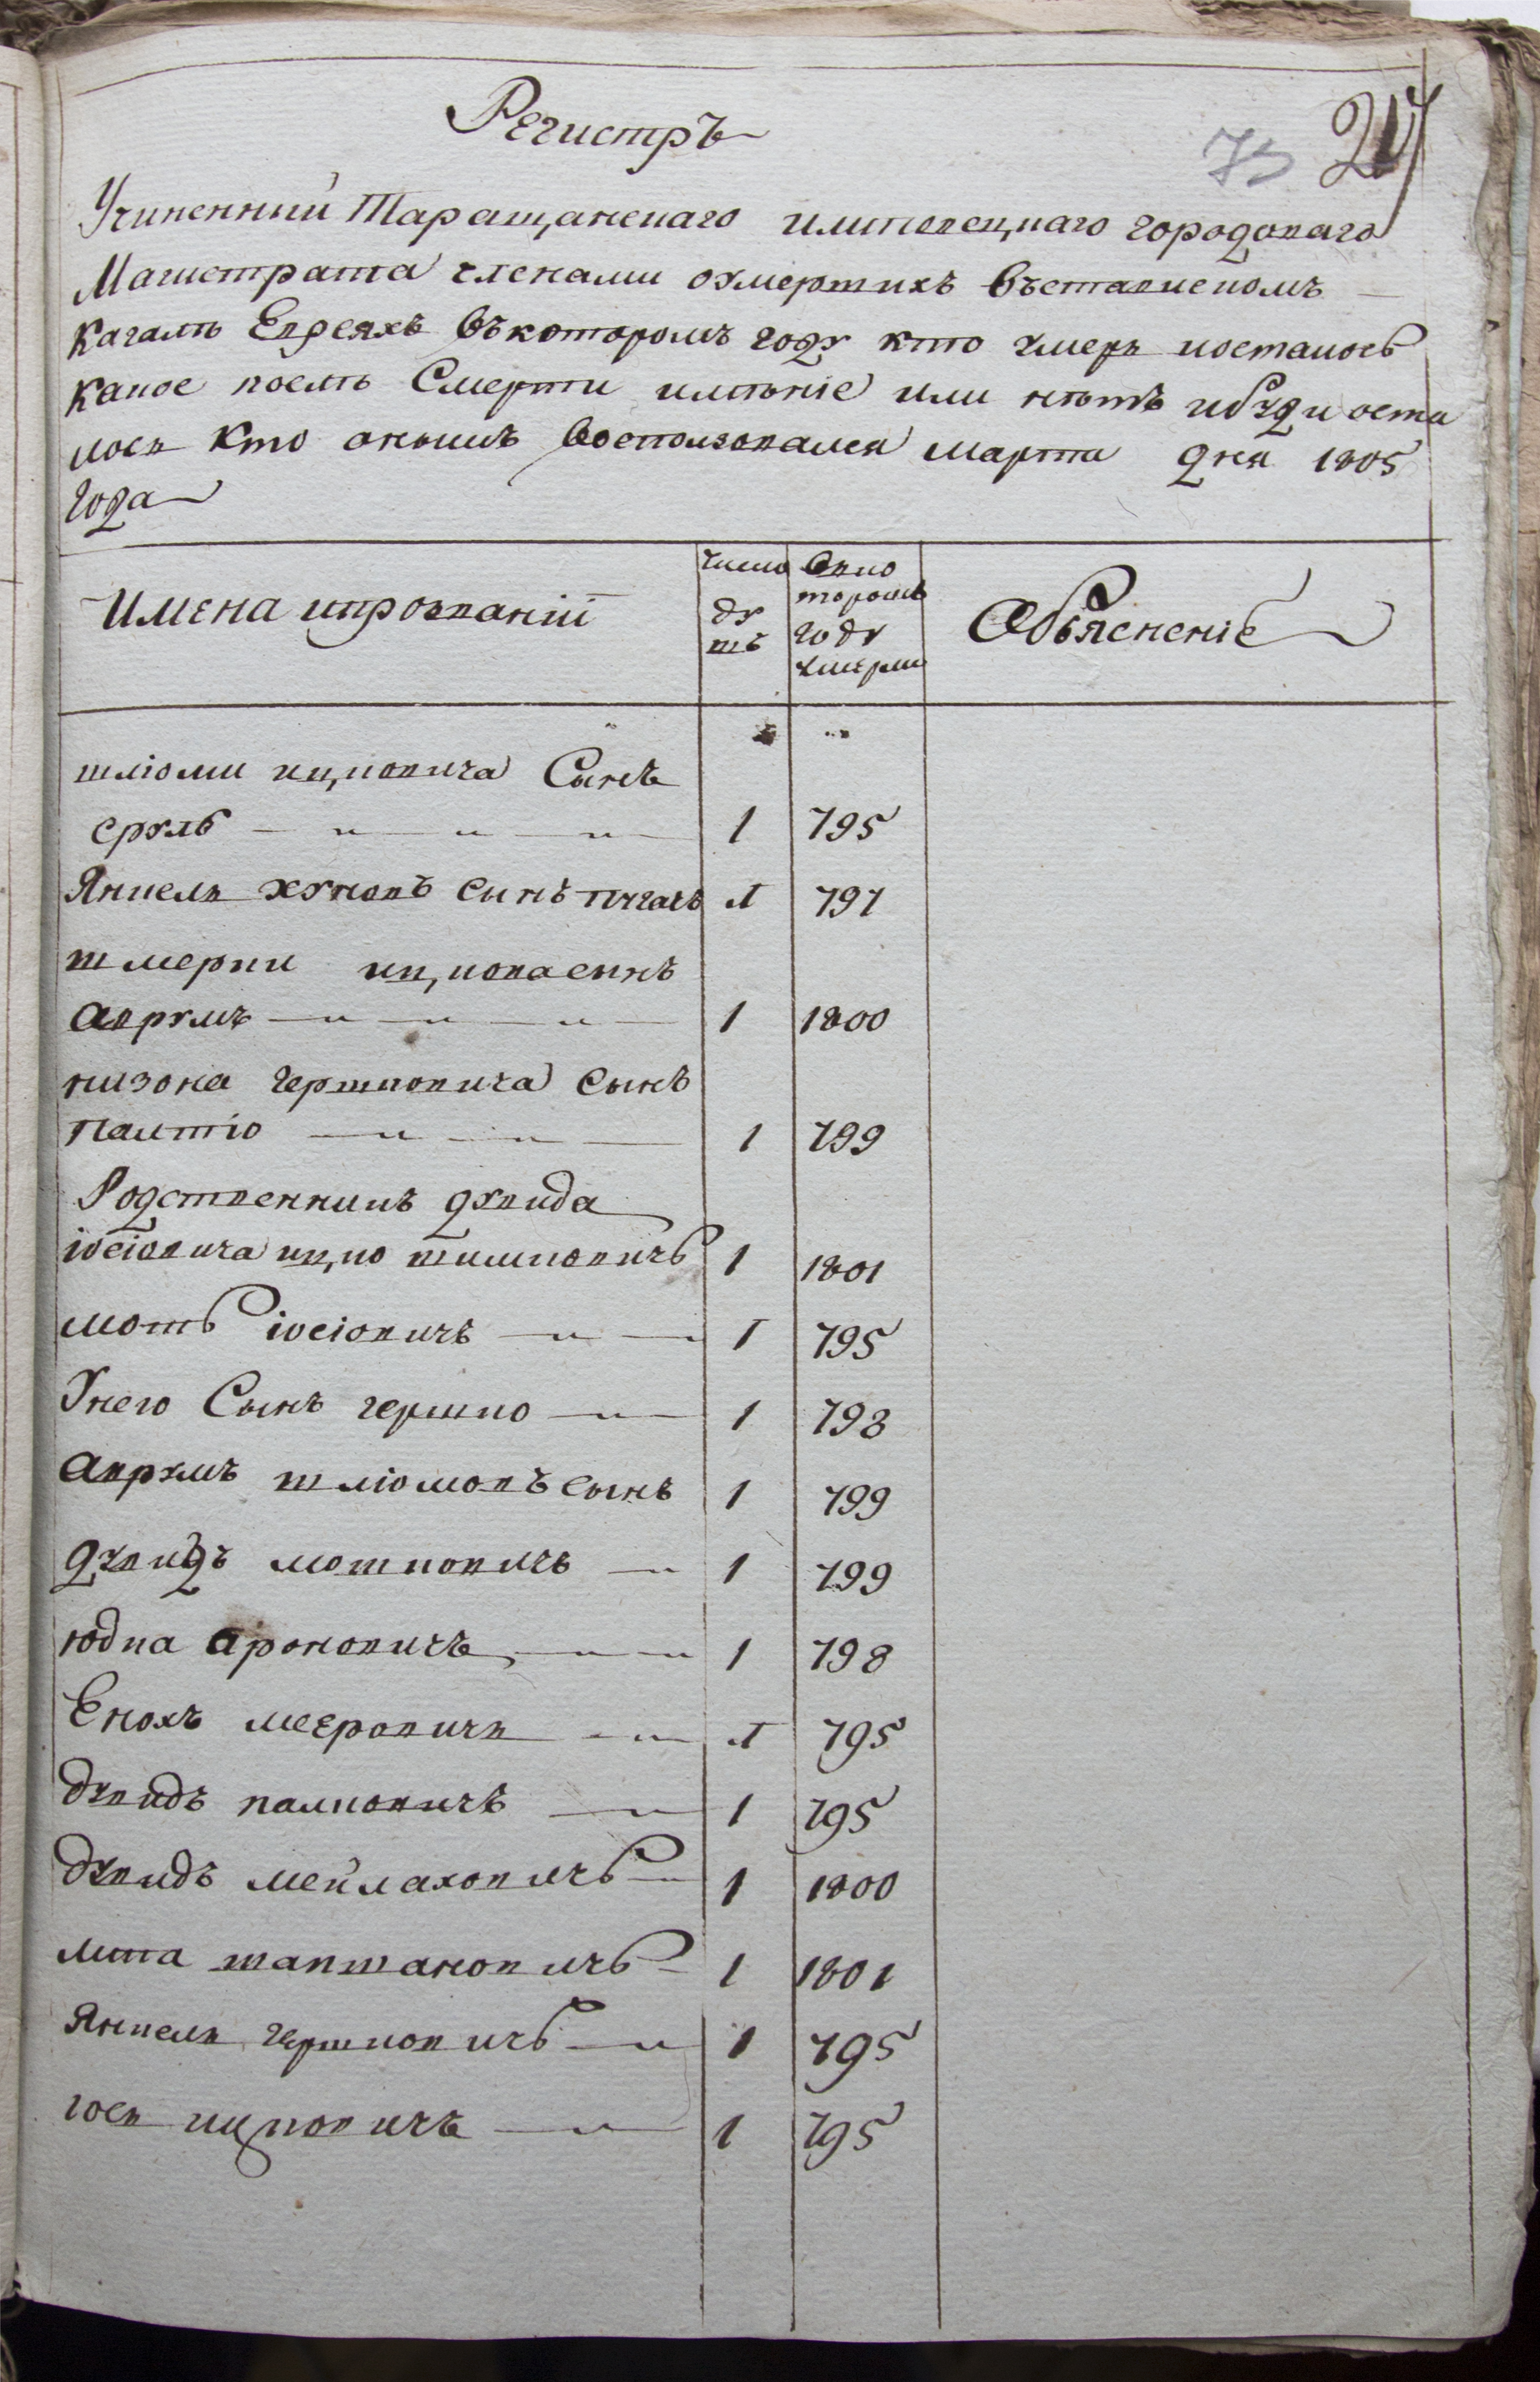 Регистръ
73 24
Учиненный Таращанскаго илиповецкаго городоваго
Магистрата членами оумершихъ въставискомъ
Кагалѣ Евреяхъ въкоторомъ году кто умеръ иосталось
какое послѣ Смерти имѣніе или нѣтъ ибуди оста
лось кто онымъ воспользовался марта дня 1805
года
Имена ипрозваній
число ду шъ
Вко торомъ году умерли
Объясненіе
шліоми ицковича Сынъ
сруль 1 795
Янкель хуновъ сынъ пугачъ 1 797
шмерки ицкова сынъ
аврумъ 1 1800
низона гершковича сынъ
палтіо 1 799
Родственникъ дувида
іосіовича ицко шимковичъ 1 1801
мошъ іосіовичъ 1 795
Унего Сынъ гершко 1 798
аврумъ шліомовъ сынъ 1 799
дувидъ мошковичъ 1 799
юдка ароновичъ 1 798
Енохъ мееровичь 1 795
дувидъ палковичъ 1 795
дувидъ мейлаховичъ 1 1800
липа шапшановичъ 1 1801
Янкель гершковичъ 1 795
іось ицковичъ 1 795